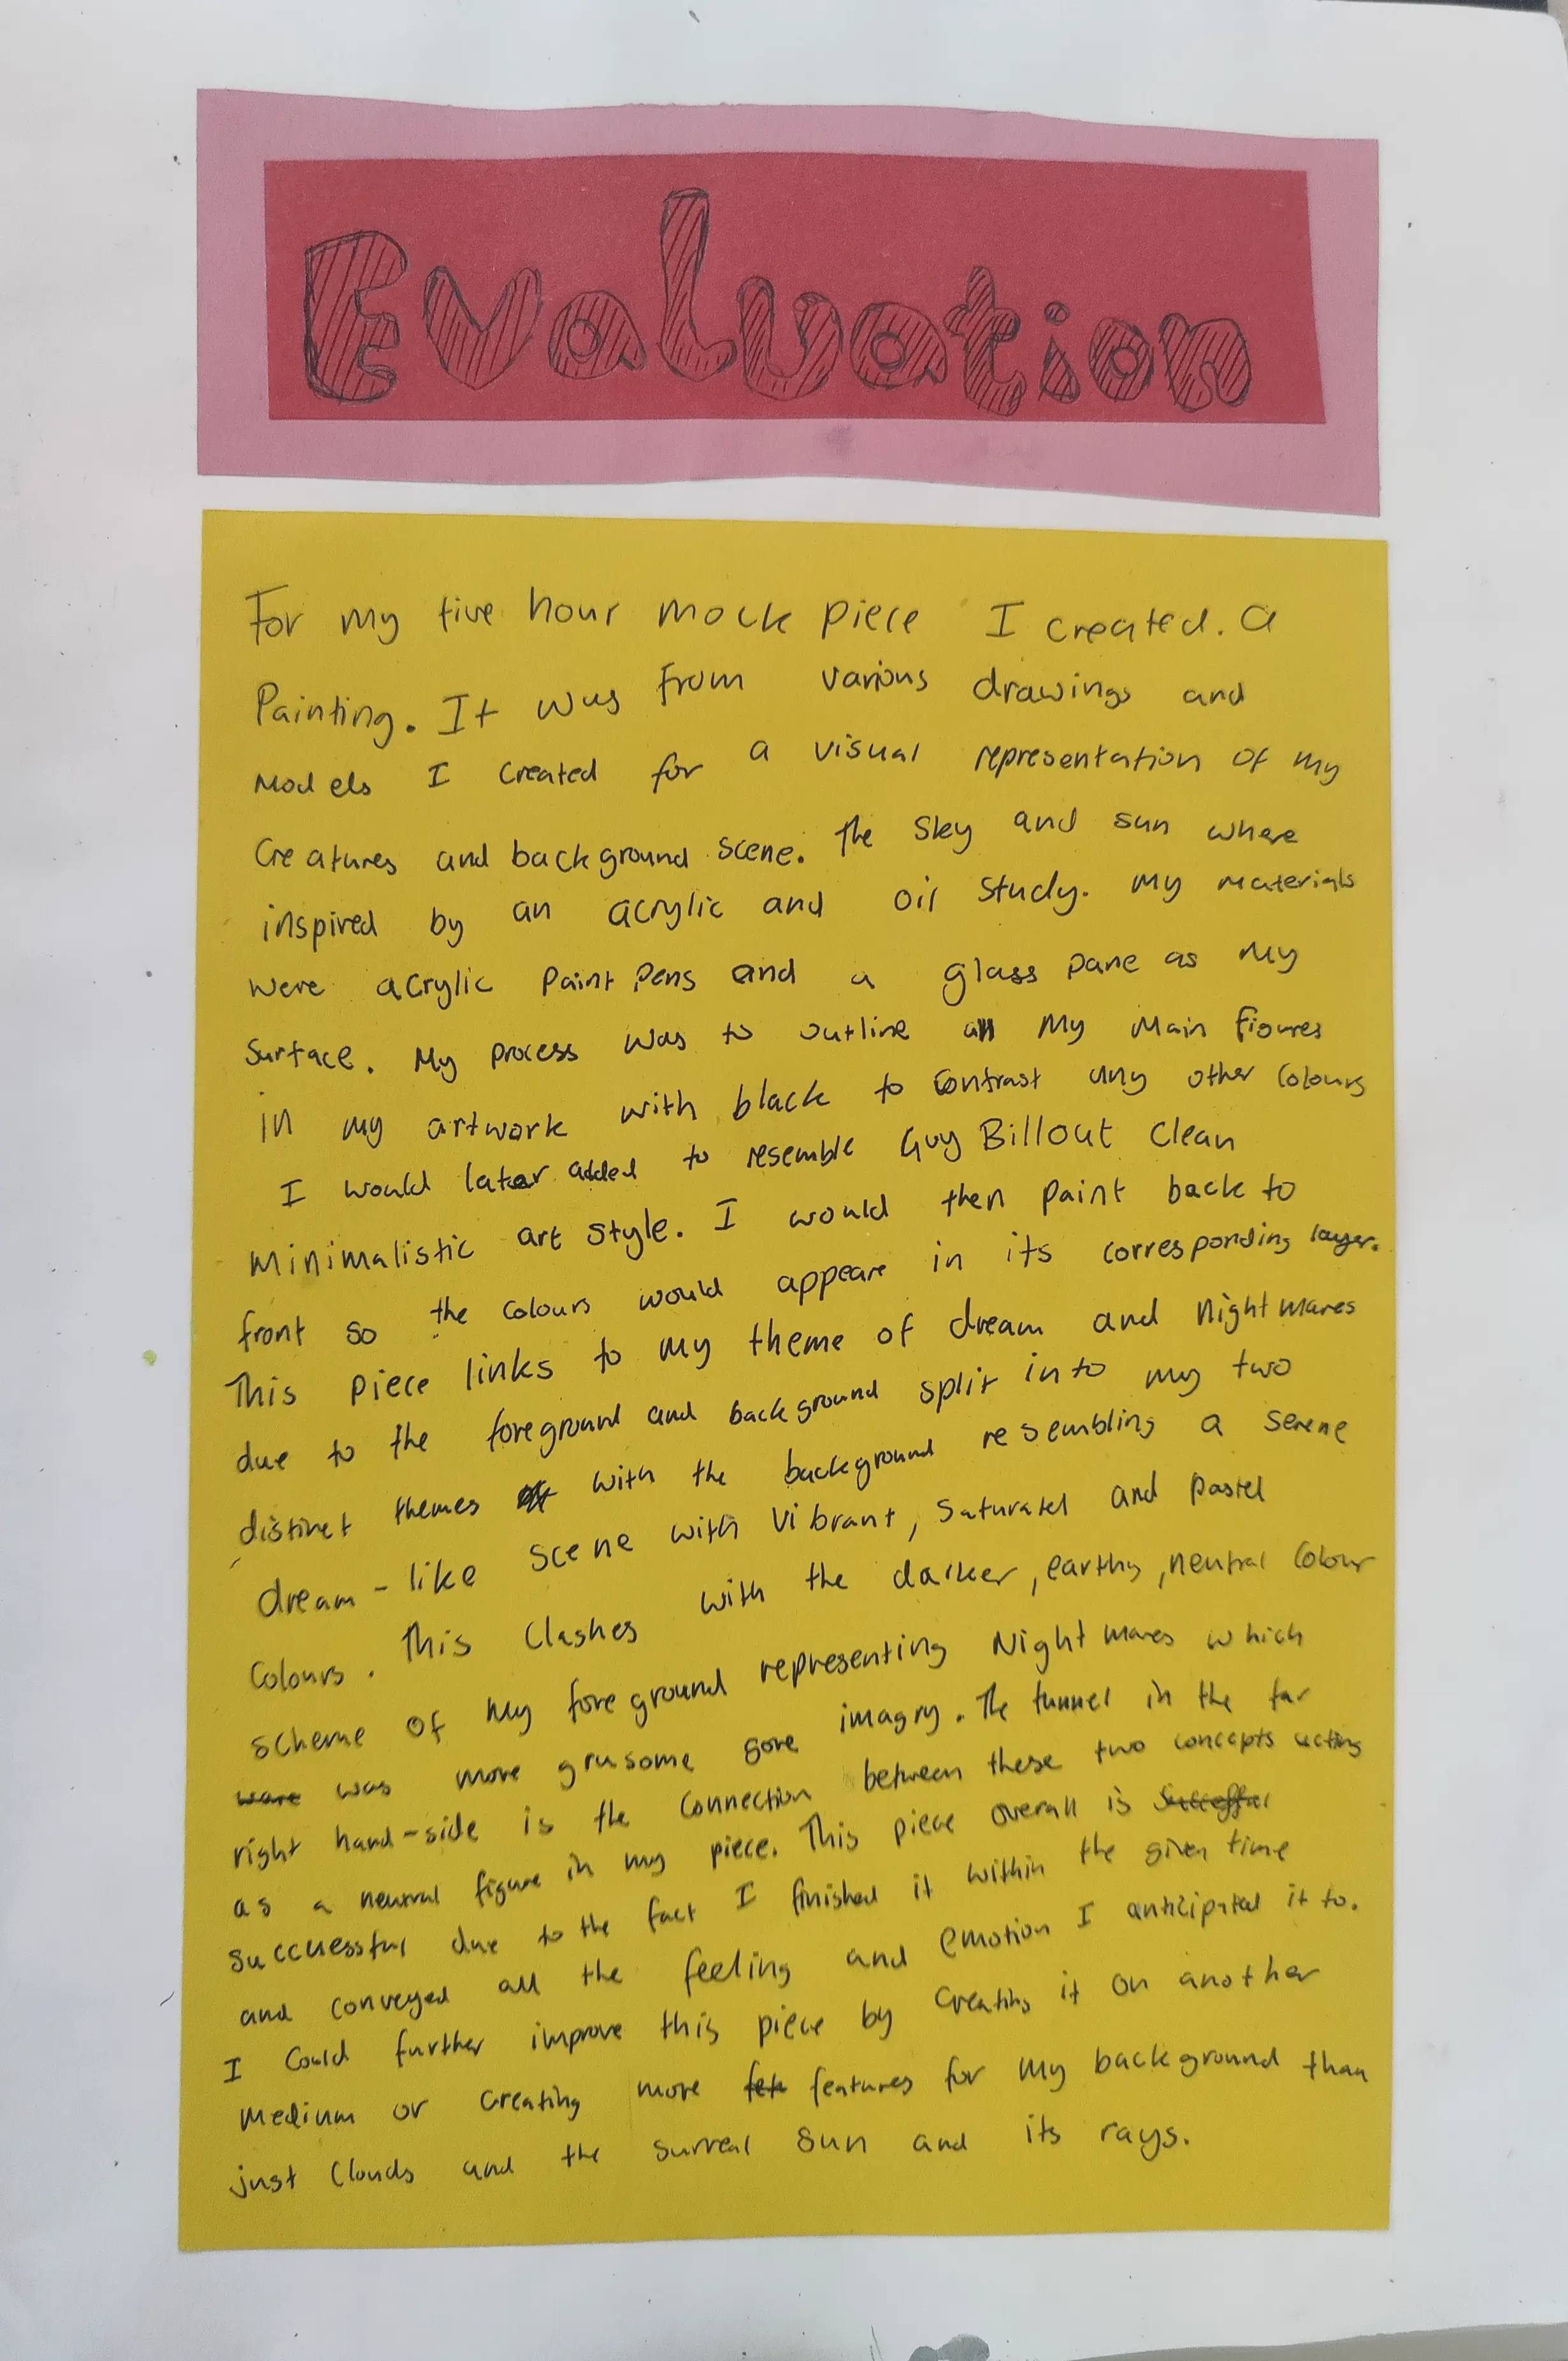 Evaluation
For my five hour mock piece I created. a
Painting. It was from various drawings and
Models I created for a visual representation of my
Creatures and background scene. The sky and sun where
inspired by an acrylic and oil study. My materials
were acrylic paint pens and a glass pane as my
surface. My process was to outline all my main figures
in my artwork with black to contrast any other colours
I would later added to resemble Guy Billout clean
minimalistic art style. I would then paint back to
front so the colours would appeare in its corresponding layer.
This piece links to my theme of dream and nightmares
due to the foreground and background split into my two
distinct themes with the background resembling a serene
dream-like scene with vibrant, saturated and pastel
colours. This clashes with the darker, earthy, neutral colour
scheme of my foreground representing Nightmares which
ware was more grusome gore imagry. The tunnel in the far
right hand-side is the connection between these two concepts acting
as a neutral figure in my piece. This piece overall is
successful due to the fact I finished it within the given time
and conveyed all the feeling and emotion I anticipated it to.
I could further improve this piece by creating it on another
medium or creating more fet features for my background than
just clouds and the surreal sun and its rays.